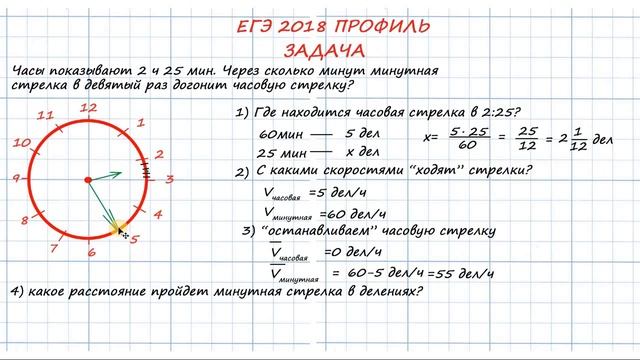 ЕГЭ 2018 ПРОФИЛЬ
ЗАДАЧА
Часы показывают 2 ч 25 мин. Через сколько минут минутная
стрелка в девятый раз догонит часовую стрелку?
12
1
2
3
4
5
6
7
8
9
10
11
1) Где находится часовая стрелка в 2:25?
60мин — 5 дел
25 мин — x дел
x= 5·25/60 = 25/12 = 2 1/12 дел
2) С какими скоростями "ходят" стрелки?
Vчасовая =5 дел/ч
Vминутная =60 дел/ч
3) "останавливаем" часовую стрелку
Vчасовая =0 дел/ч
Vминутная = 60-5 дел/ч =55 дел/ч
4) какое расстояние пройдет минутная стрелка в делениях?